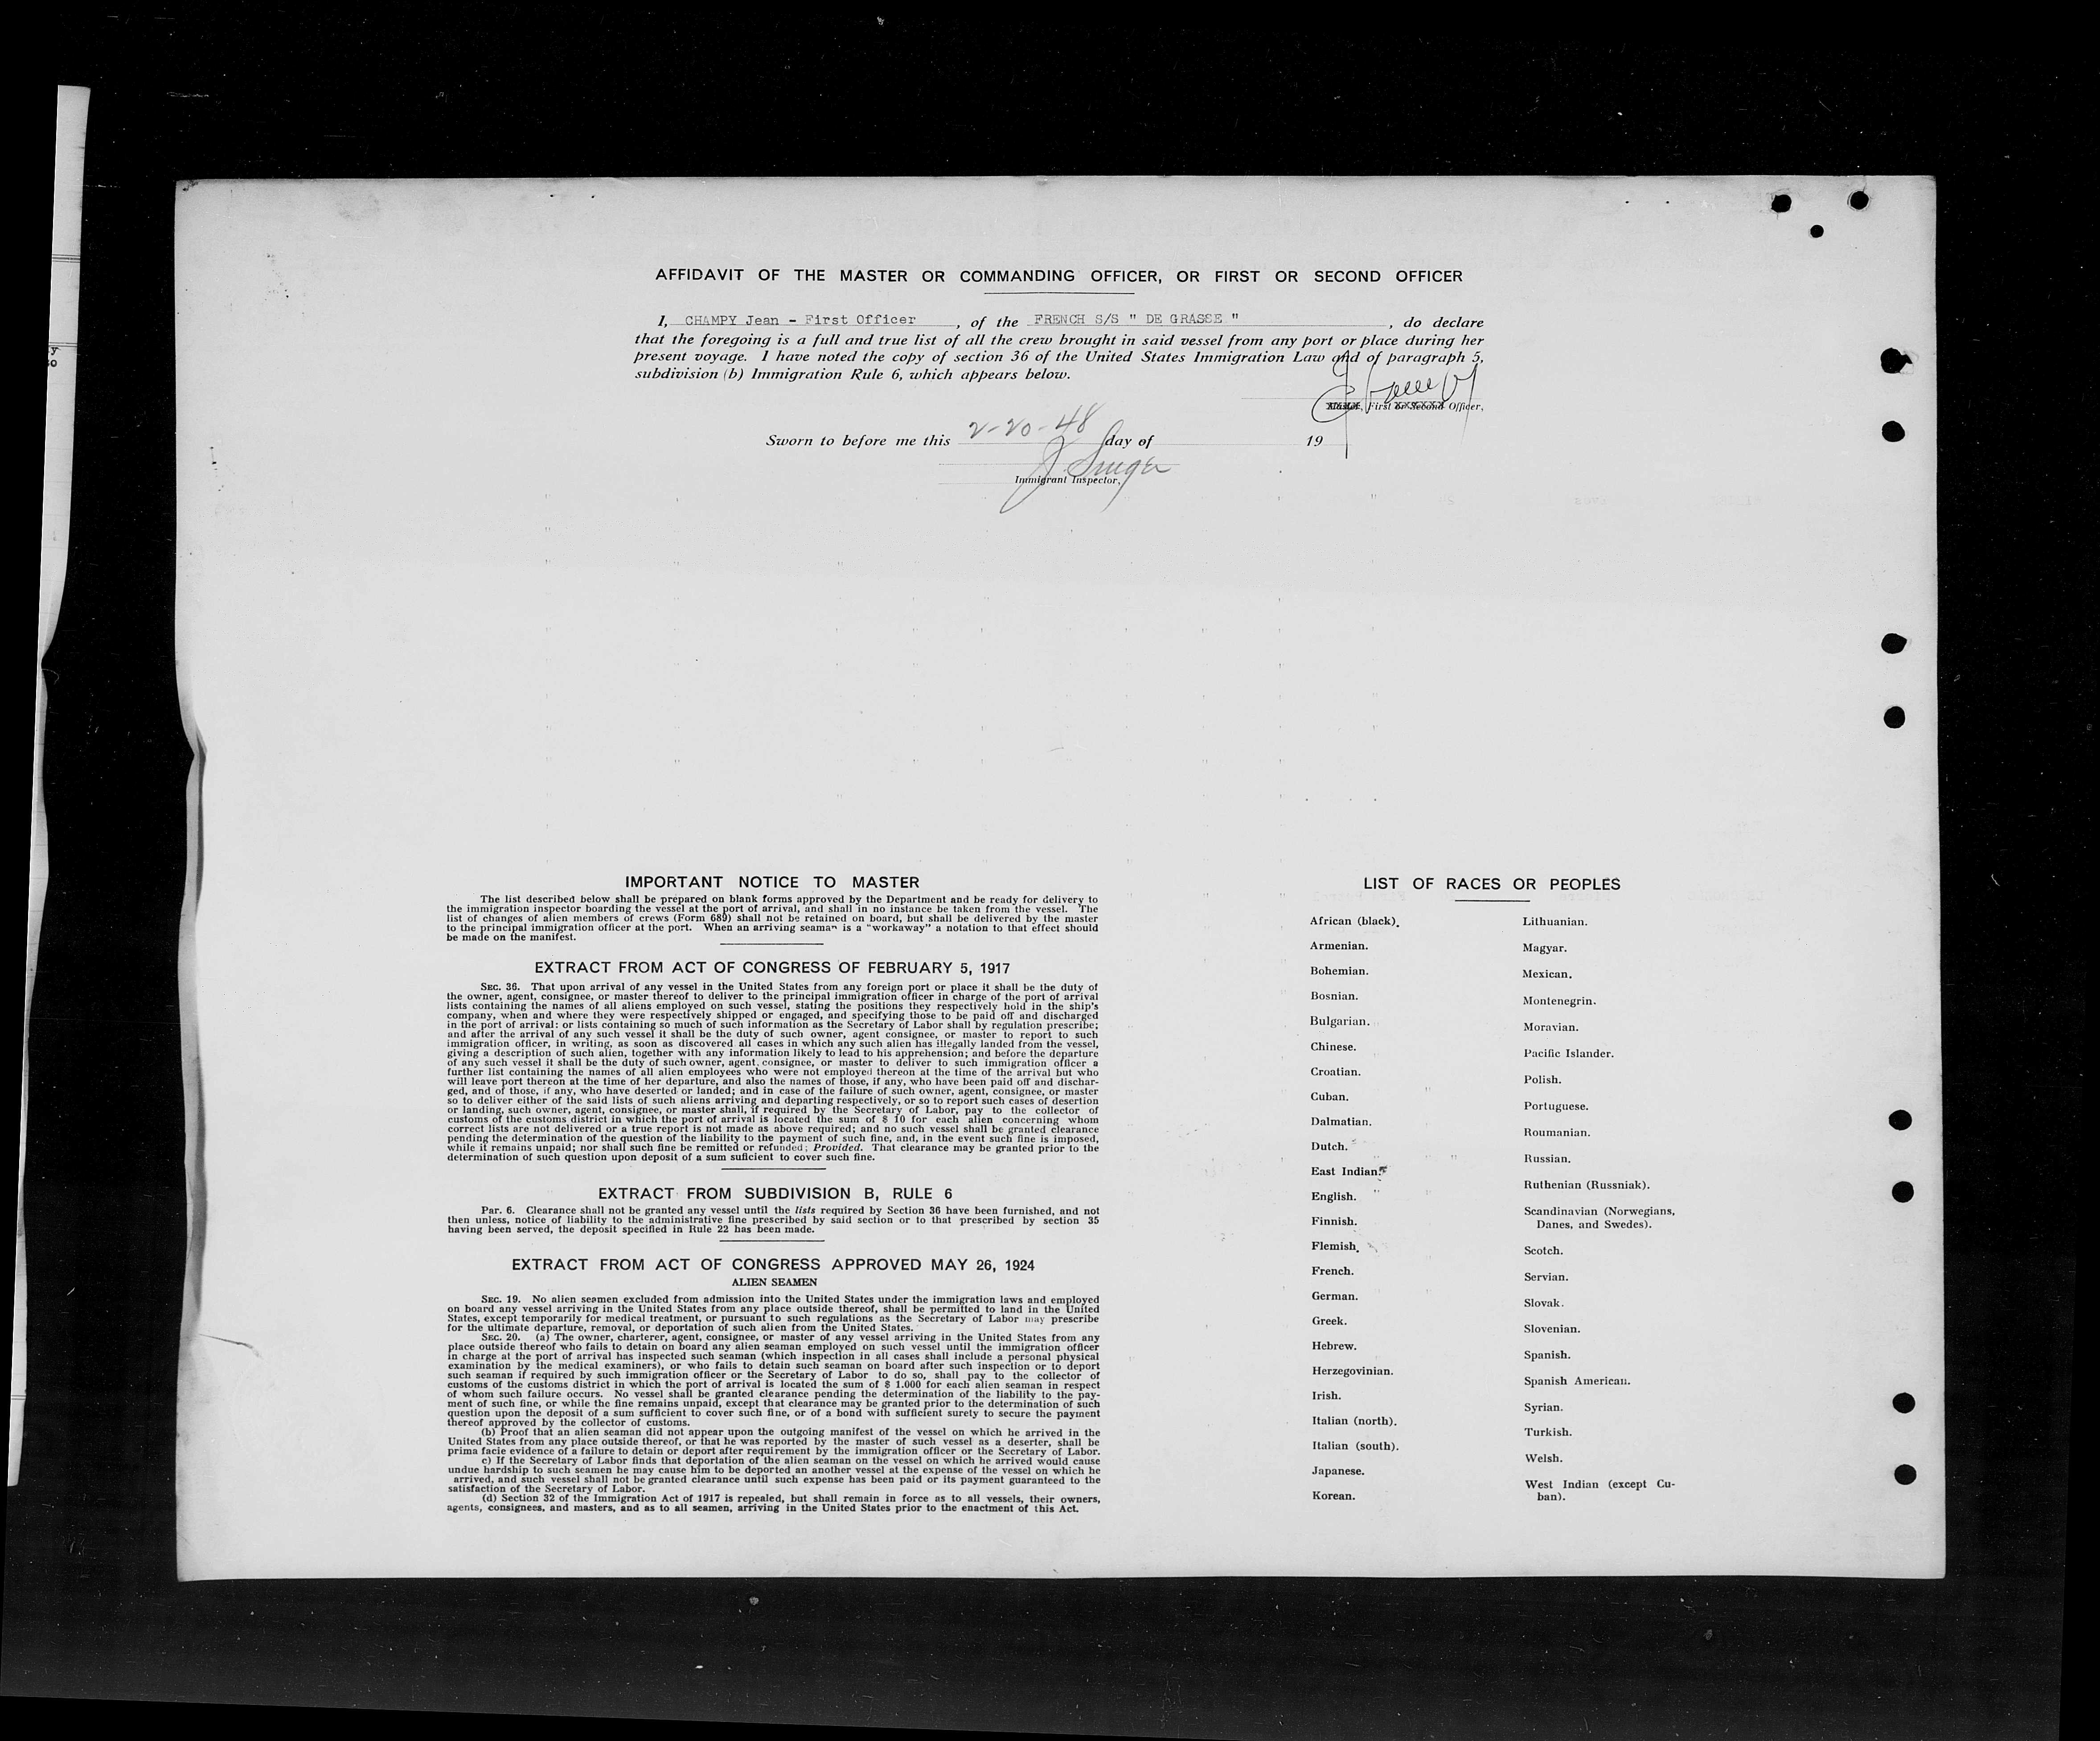 AFFIDAVIT OF THE MASTER OR COMMANDING OFFICER, OR FIRST OR SECOND OFFICER
I, CHAMPY Jean - First Officer , of the FRENCH S/S " DE GRASSE " , do declare
that the foregoing is a full and true list of all the crew brought in said vessel from any port or place during her
present voyage. I have noted the copy of section 36 of the United States Immigration Law and of paragraph 5,
subdivision (b) Immigration Rule 6, which appears below.
Master, First or Second Officer,
Sworn to before me this 2-20-48 day of 19
Immigrant Inspector,
IMPORTANT NOTICE TO MASTER
The list described below shall be prepared on blank forms approved by the Department and be ready for delivery to
the immigration inspector boarding the vessel at the port of arrival, and shall in no instance be taken from the vessel. The
list of changes of alien members of crews (Form 689) shall not be retained on board, but shall be delivered by the master
to the principal immigration officer at the port. When an arriving seaman is a "workaway" a notation to that effect should
be made on the manifest.
EXTRACT FROM ACT OF CONGRESS OF FEBRUARY 5, 1917
SEC. 36. That upon arrival of any vessel in the United States from any foreign port or place it shall be the duty of
the owner, agent, consignee, or master thereof to deliver to the principal immigration officer in charge of the port of arrival
lists containing the names of all aliens employed on such vessel, stating the positions they respectively hold in the ship's
company, when and where they were respectively shipped or engaged, and specifying those to be paid off and discharged
in the port of arrival: or lists containing so much of such information as the Secretary of Labor shall by regulation prescribe;
and after the arrival of any such vessel it shall be the duty of such owner, agent consignee, or master to report to such
immigration officer, in writing, as soon as discovered all cases in which any such alien has illegally landed from the vessel,
giving a description of such alien, together with any information likely to lead to his apprehension; and before the departure
of any such vessel it shall be the duty of such owner, agent, consignee, or master to deliver to such immigration officer a
further list containing the names of all alien employees who were not employed thereon at the time of the arrival but who
will leave port thereon at the time of her departure, and also the names of those, if any, who have been paid off and dischar-
ged, and of those, if any, who have deserted or landed; and in case of the failure of such owner, agent, consignee, or master
so to deliver either of the said lists of such aliens arriving and departing respectively, or so to report such cases of desertion
or landing, such owner, agent, consignee, or master shall, if required by the Secretary of Labor, pay to the collector of
customs of the customs district in which the port of arrival is located the sum of $ 10 for each alien concerning whom
correct lists are not delivered or a true report is not made as above required; and no such vessel shall be granted clearance
pending the determination of the question of the liability to the payment of such fine, and, in the event such fine is imposed,
while it remains unpaid; nor shall such fine be remitted or refunded; Provided. That clearance may be granted prior to the
determination of such question upon deposit of a sum suficient to cover such fine.
EXTRACT FROM SUBDIVISION B, RULE 6
Par. 6. Clearance shall not be granted any vessel until the lists required by Section 36 have been furnished, and not
then unless, notice of liability to the administrative fine prescribed by said section or to that prescribed by section 35
having been served, the deposit specified in Rule 22 has been made.
EXTRACT FROM ACT OF CONGRESS APPROVED MAY 26, 1924
ALIEN SEAMEN
SEC. 19. No alien seamen excluded from admission into the United States under the immigration laws and employed
on board any vessel arriving in the United States from any place outside thereof, shall be permitted to land in the United
States, except temporarily for medical treatment, or pursuant to such regulations as the Secretary of Labor may prescribe
for the ultimate departure, removal, or deportation of such alien from the United States.
SEC. 20. (a) The owner, charterer, agent, consignee, or master of any vessel arriving in the United States from any
place outside thereof who fails to detain on board any alien seaman employed on such vessel until the immigration officer
in charge at the port of arrival has inspected such seaman (which inspection in all cases shall include a personal physical
examination by the medical examiners), or who fails to detain such seaman on board after such inspection or to deport
such seaman if required by such immigration officer or the Secretary of Labor to do so, shall pay to the collector of
customs of the customs district in which the port of arrival is located the sum of $ 1.000 for each alien seaman in respect
of whom such failure occurs. No vessel shall be granted clearance pending the determination of the liability to the pay-
ment of such fine, or while the fine remains unpaid, except that clearance may be granted prior to the determination of such
question upon the deposit of a sum sufficient to cover such fine, or of a bond with sufficient surety to secure the payment
thereof approved by the collector of customs.
(b) Proof that an alien seaman did not appear upon the outgoing manifest of the vessel on which he arrived in the
United States from any place outside thereof, or that he was reported by the master of such vessel as a deserter, shall be
prima facie evidence of a failure to detain or deport after requirement by the immigration officer or the Secretary of Labor.
c) If the Secretary of Labor finds that deportation of the alien seaman on the vessel on which he arrived would cause
undue hardship to such seamen he may cause him to be deported an another vessel at the expense of the vessel on which he
arrived, and such vessel shall not be granted clearance until such expense has been paid or its payment guaranteed to the
satisfaction of the Secretary of Labor.
(d) Section 32 of the Immigration Act of 1917 is repealed, but shall remain in force as to all vessels, their owners,
agents, consignees, and masters, and as to all seamen, arriving in the United States prior to the enactment of this Act.
LIST OF RACES OR PEOPLES
African (black).
Armenian.
Bohemian.
Bosnian.
Bulgarian.
Chinese.
Croatian.
Cuban.
Dalmatian.
Dutch.
East Indian.
English.
Finnish.
Flemish.
French.
German.
Greek.
Hebrew.
Herzegovinian.
Irish.
Italian (north).
Italian (south).
Japanese.
Korean.
Lithuanian.
Magyar.
Mexican.
Montenegrin.
Moravian.
Pacific Islander.
Polish.
Portuguese.
Roumanian.
Russian.
Ruthenian (Russniak).
Scandinavian (Norwegians,
Danes, and Swedes).
Scotch.
Servian.
Slovak.
Slovenian.
Spanish.
Spanish American.
Syrian.
Turkish.
Welsh.
West Indian (except Cu-
ban).